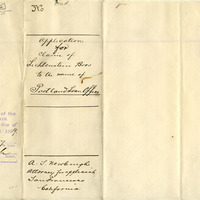 Application
for
Claim of
Lichtenstein Bros
to the name of
Portland Loan Office
A. S. Newburgh
Attorney for applicant
San Francisco
California